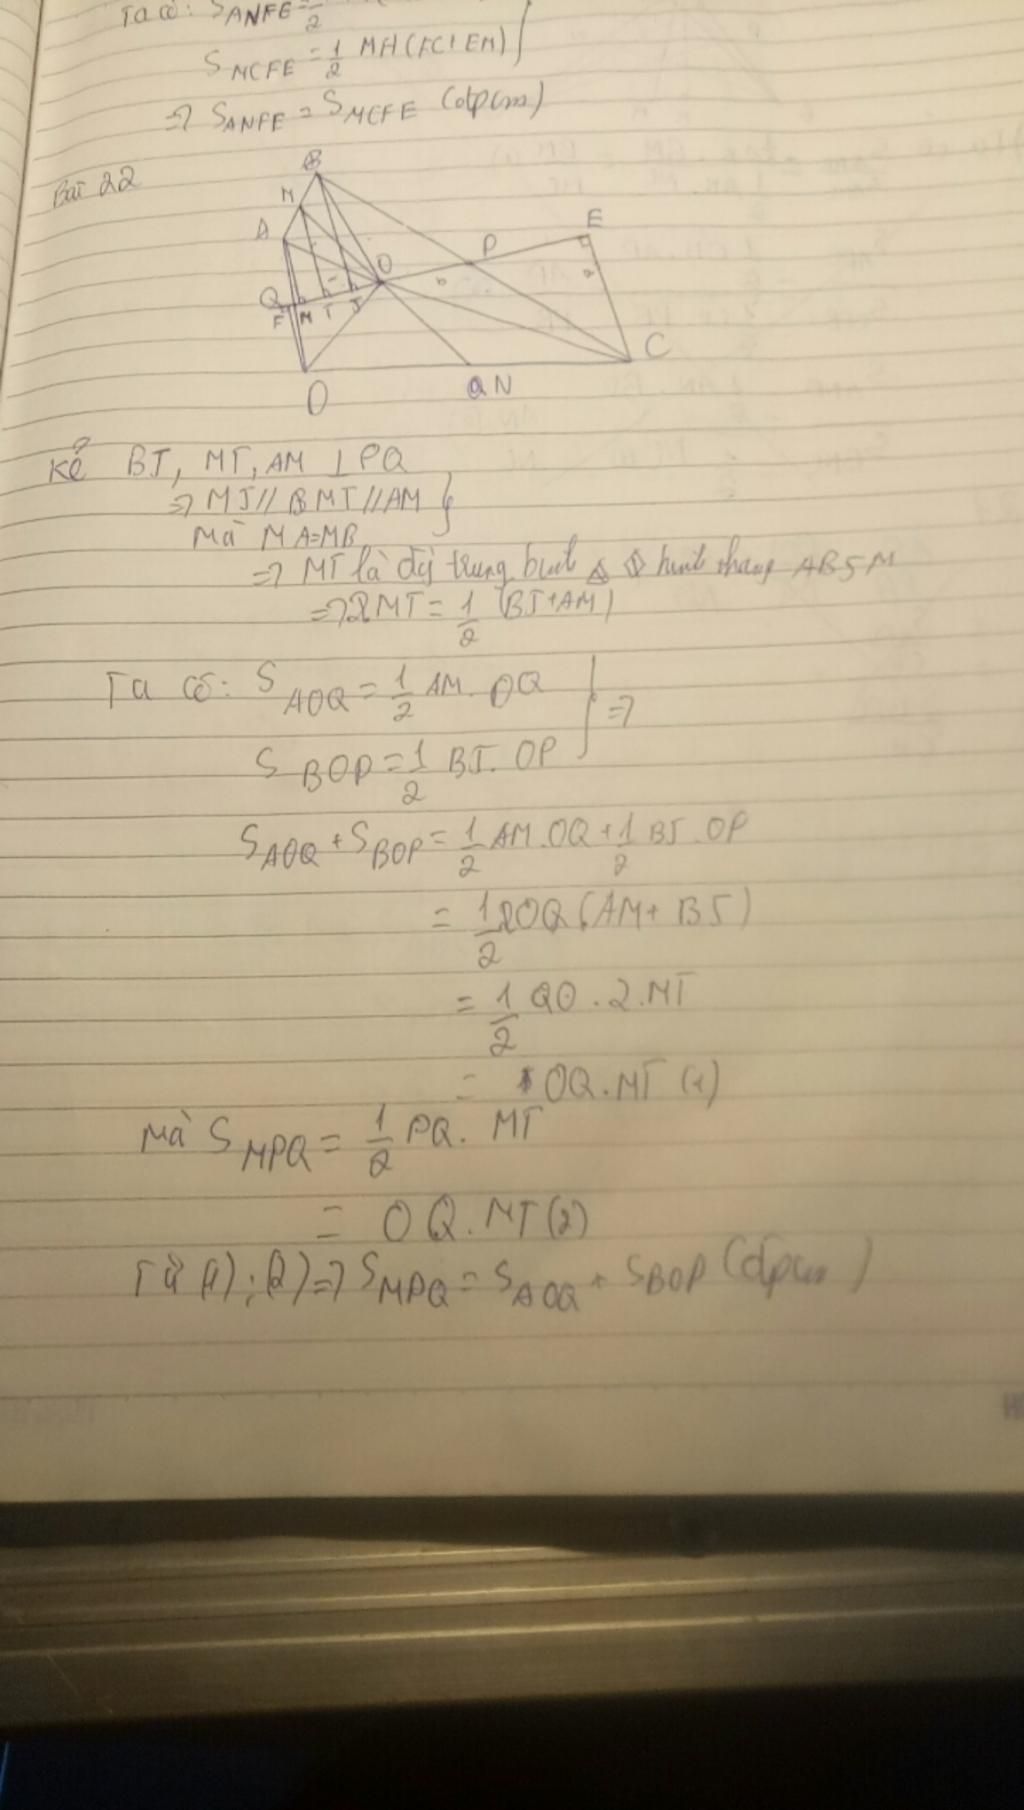 Ta có: S ANFE = 1/2
S MCFE = 1/2 MH(FC+EM)
=> S ANFE = S MCFE (đpcm)
Bài 22
B
M
A
E
P
O
Q
F M T J
C
D
Q N
Kẻ BJ, MT, AM ⊥ PQ
=> MJ // BMT // AM
Mà MA=MB
=> MT là đg trung bình hình thang ABJM
=> 2MT = 1/2 (BJ+AM)
Ta có: S AOQ = 1/2 AM. OQ
=>
S BOP = 1/2 BJ. OP
S AOQ + S BOP = 1/2 AM.OQ + 1/2 BJ.OP
= 1/2 OQ (AM+BJ)
= 1/2 QO . 2.MT
= OQ.MT (1)
Mà S MPQ = 1/2 PQ. MT
= OQ.MT (2)
Từ (1); (2) => S MPQ = S AOQ + S BOP (đpcm)